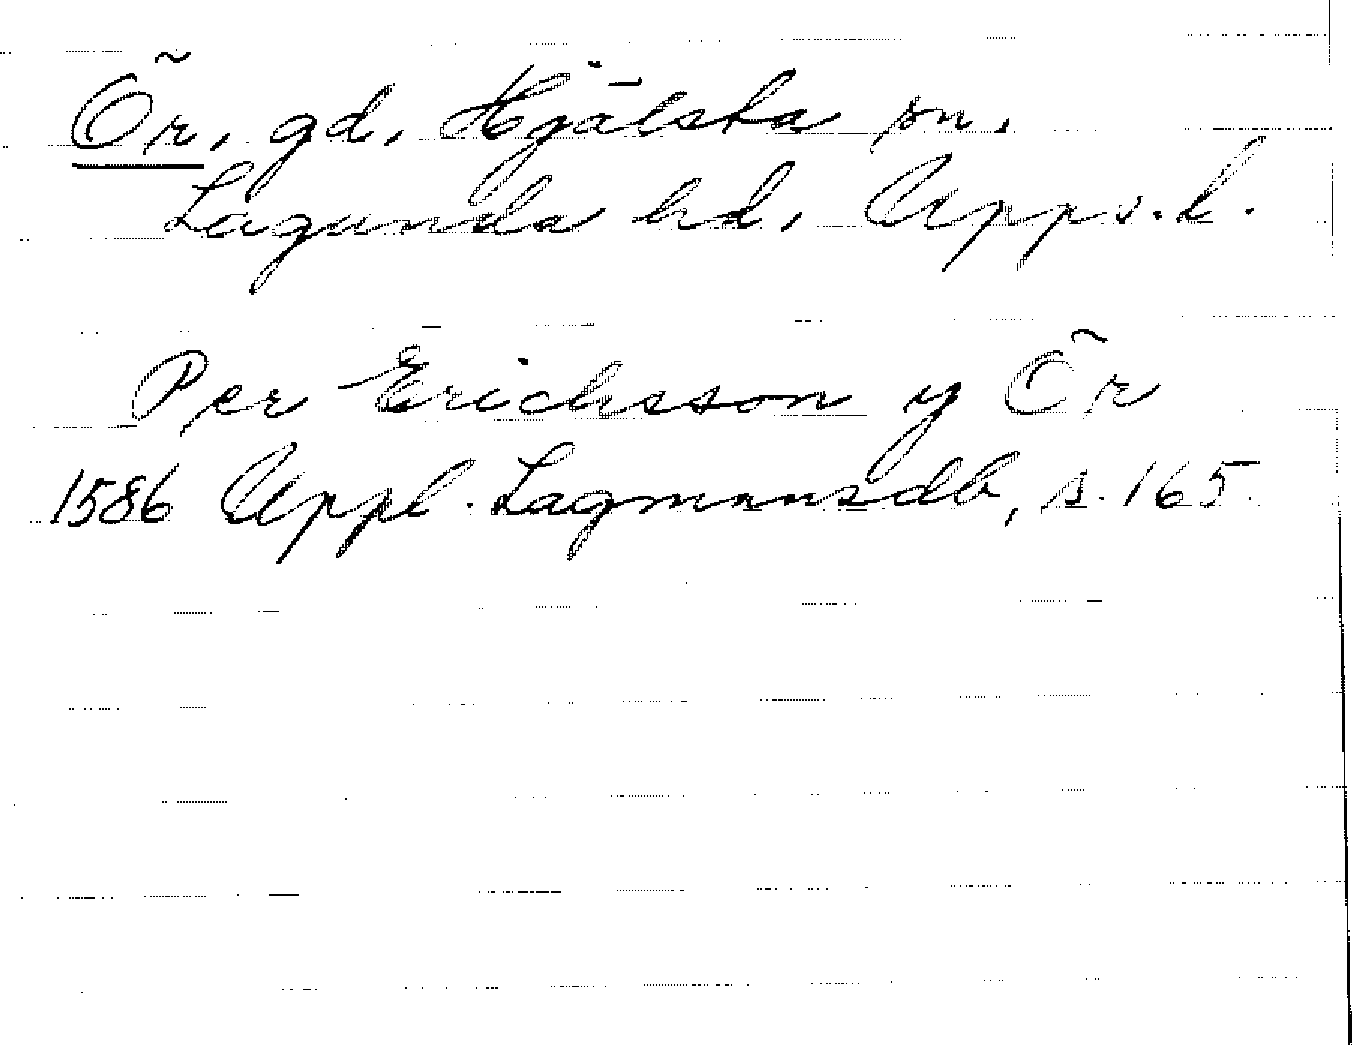 Ör, gd, Hjälsta sn.
Lagunda hd, Upps. l.
Per Erichsson y Ör
1586 Uppl. Lagmansdb, s. 165.